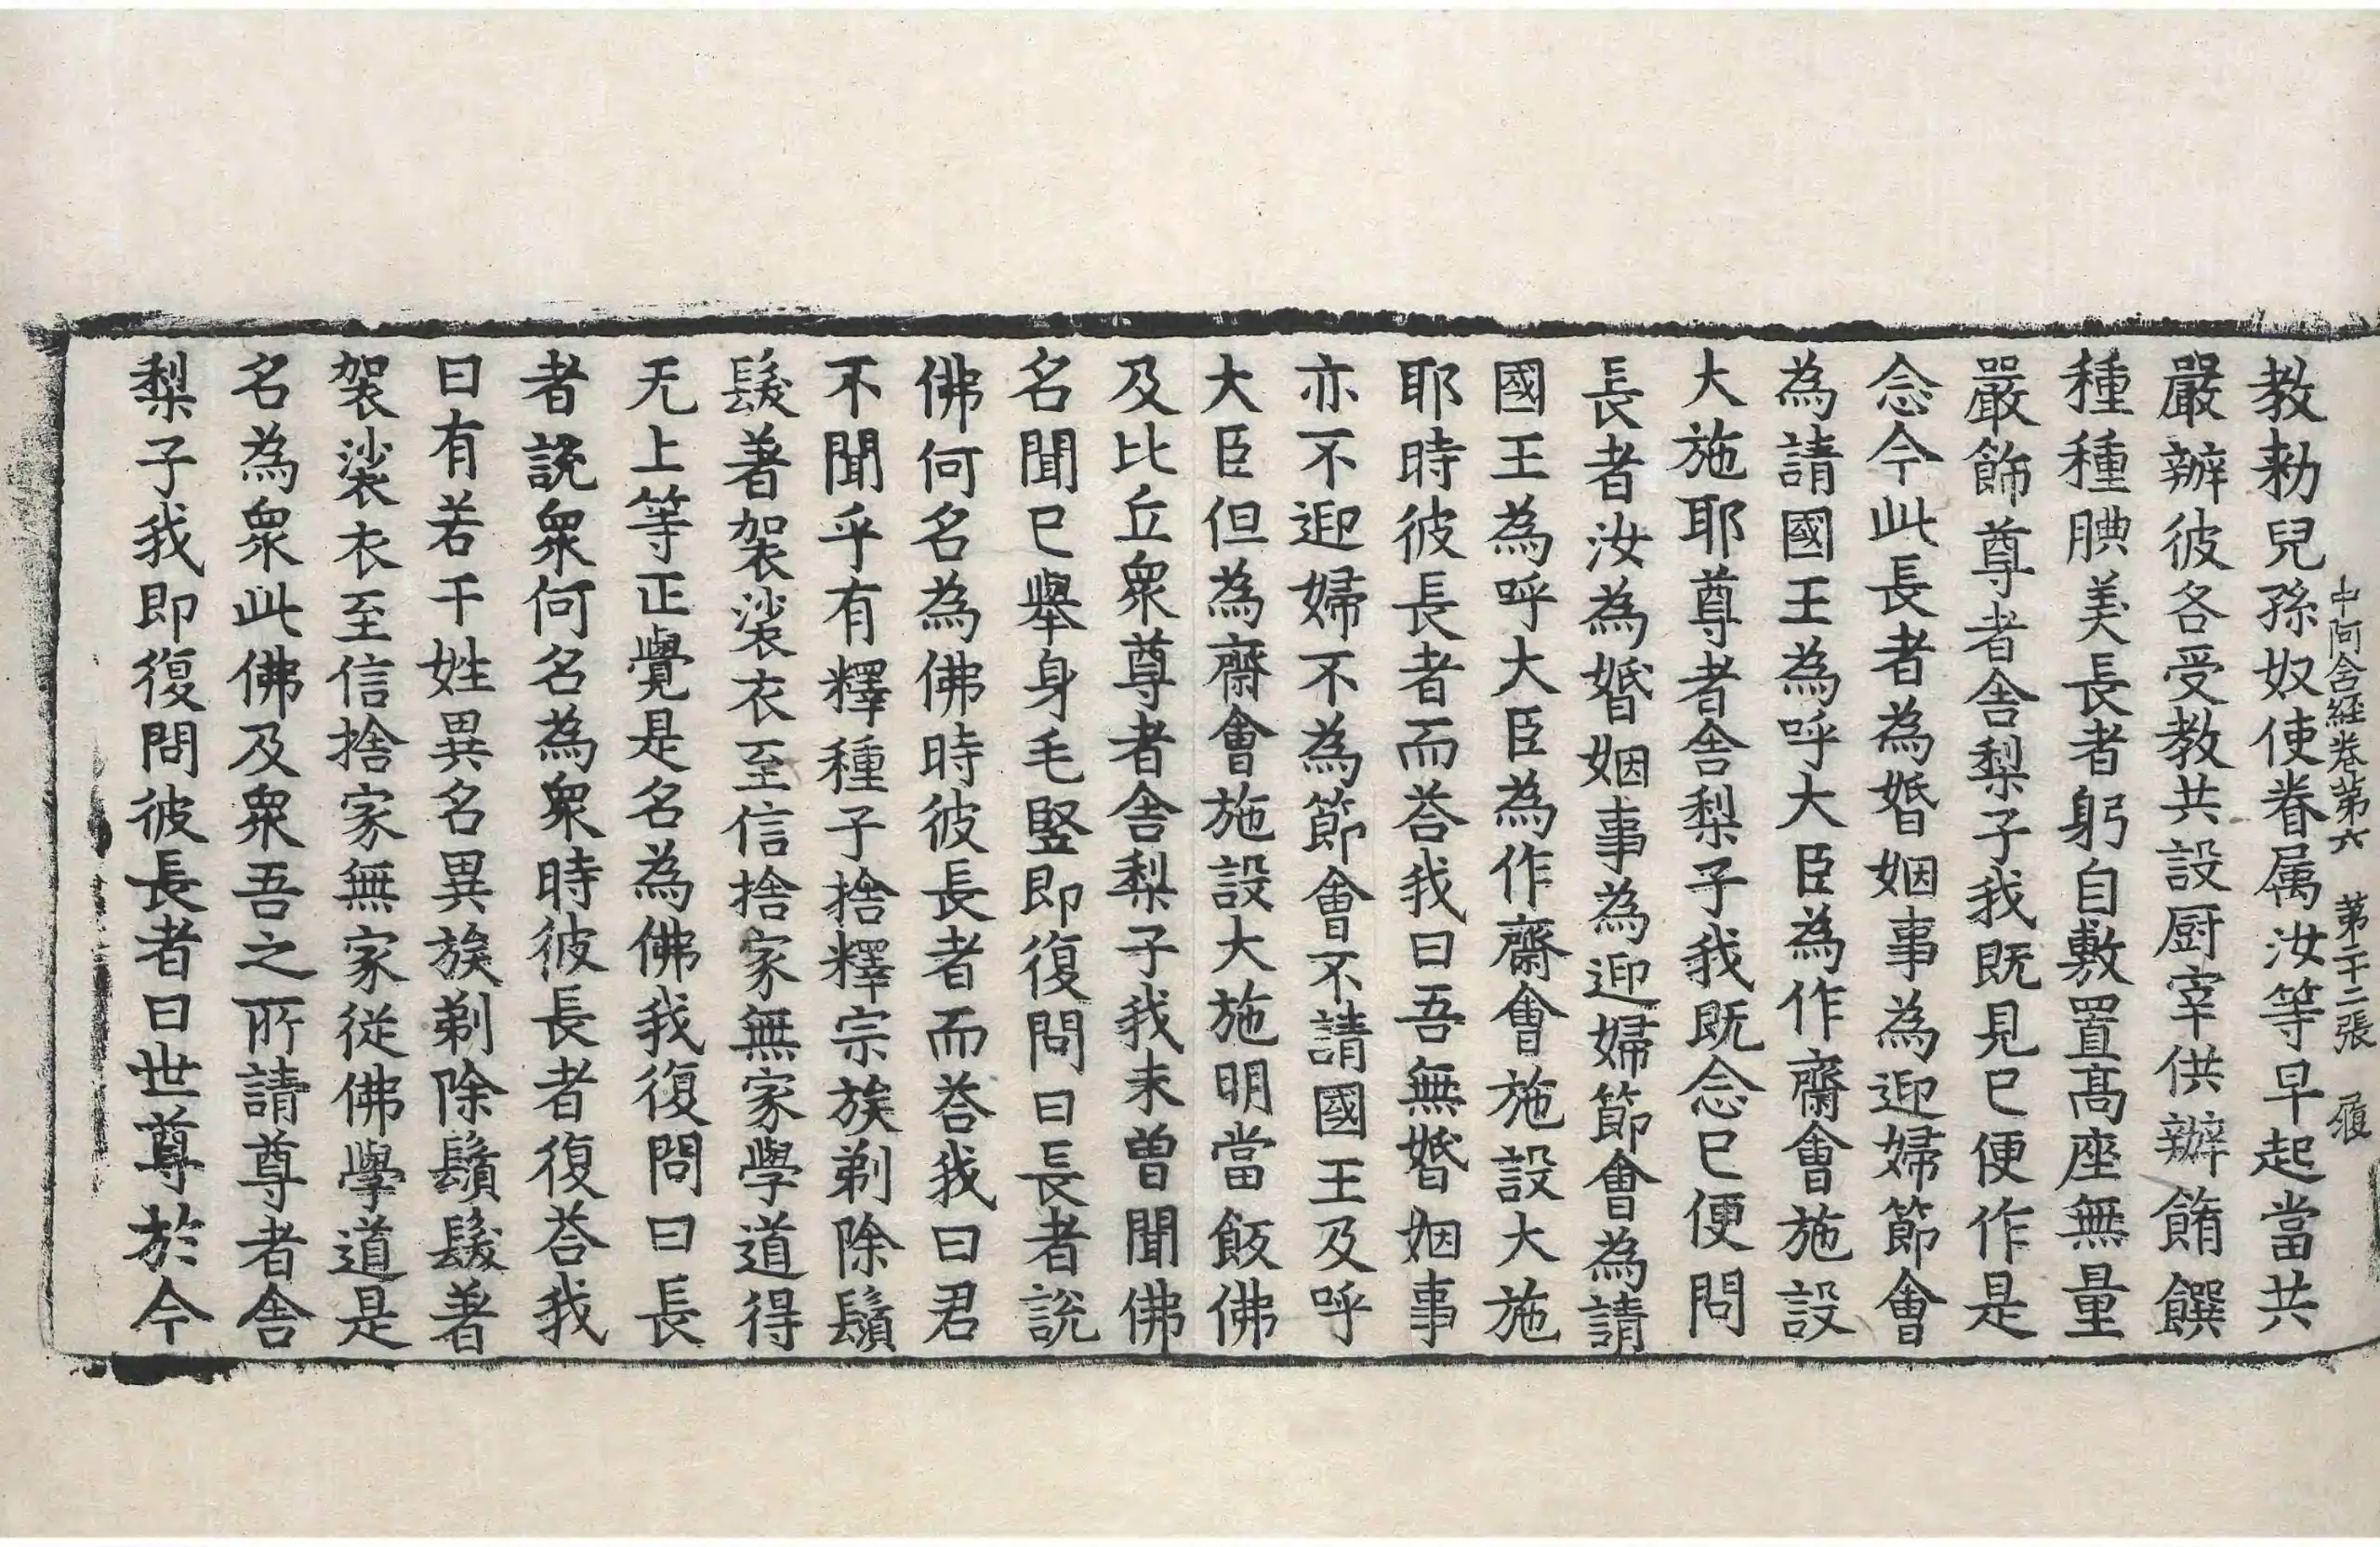 中阿含經卷第六 第二十二張 履
教勑兒孫奴使眷属汝等早起當共
嚴辦彼各受教共設厨宰供辦餚饌
種種腆美長者躬自敷置髙座無量
嚴飾尊者舎梨子我既見已便作是
念今此長者為婚姻事為迎婦節會
為請國王為呼大臣為作齋會施設
大施耶尊者舎梨子我既念已便問
長者汝為婚姻事為迎婦節會為請
國王為呼大臣為作齋會施設大施
耶時彼長者而荅我曰吾無婚姻事
亦不迎婦不為節會不請國王及呼
大臣但為齋會施設大施明當飯佛
及比丘衆尊者舎梨子我未曽聞佛
名聞已舉身毛竪即復問曰長者說
佛何名為佛時彼長者而荅我曰君
不聞乎有釋種子捨釋宗族剃除鬚
髮著袈裟衣至信捨家無家學道得
无上等正覺是名為佛我復問曰長
者說衆何名為衆時彼長者復荅我
曰有若干姓異名異族剃除鬚髮著
袈裟衣至信捨家無家從佛學道是
名為衆此佛及衆吾之所請尊者舎
梨子我即復問彼長者曰世尊於今